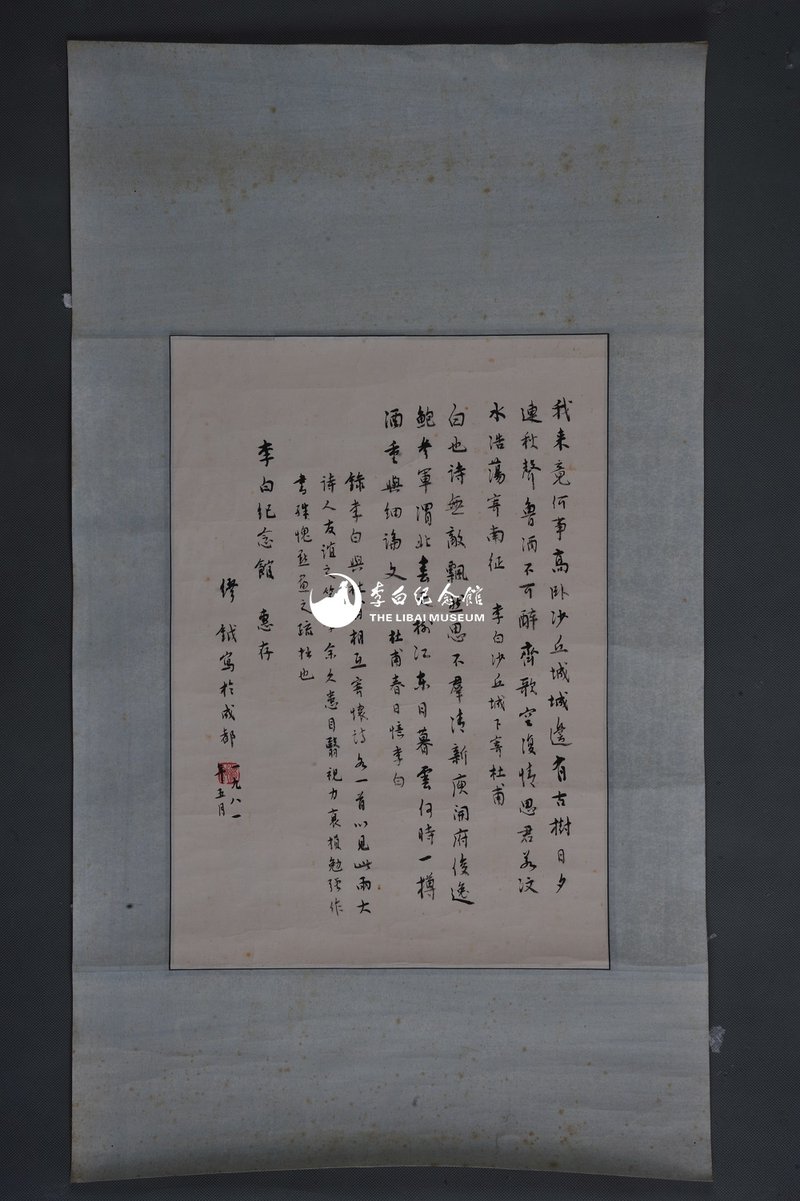 我来竟何事高卧沙丘城城邊有古樹日夕
連秋聲魯酒不可醉齊歌空復情思君若汶
水浩蕩寄南征 李白沙丘城下寄杜甫
白也詩無敵飄然思不羣清新庾開府俊逸
鮑參軍渭北春天樹江東日暮雲何時一樽
酒重與細論文 杜甫春日憶李白
錄李白與杜甫相互寄懷詩各一首以見此兩大
詩人友誼之 余久患目翳視力衰損勉强作
書殊愧點畫之疏拙也
李白紀念館 惠存
繆鉞寫於成都
一九八一
年五月
李白纪念館
THE LIBAI MUSEUM